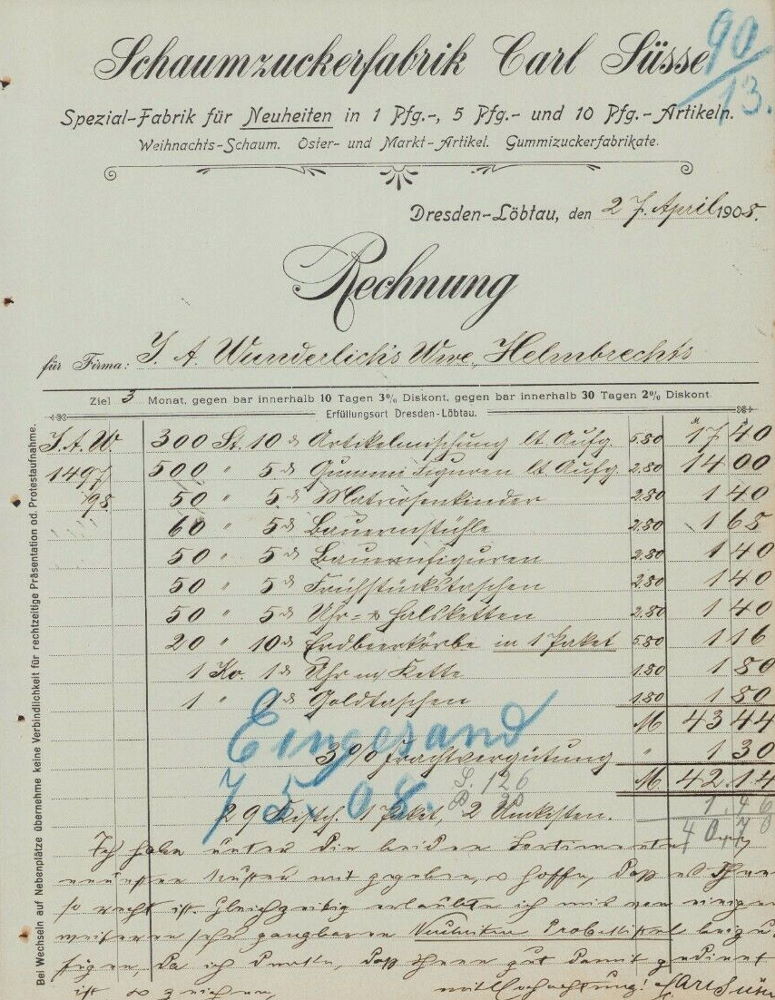 Schaumzuckerfabrik Carl Süsse
90/13.
Spezial-Fabrik für Neuheiten in 1 Pfg.-, 5 Pfg.- und 10 Pfg.-Artikeln.
Weihnachts-Schaum. Oster- und Markt-Artikel. Gummizuckerfabrikate.
Dresden-Löbtau, den 27. April 1908.
Rechnung
für Firma: J. A. Wunderlich's Wwe, Helmbrechts
Ziel 3 Monat, gegen bar innerhalb 10 Tagen 3% Diskont, gegen bar innerhalb 30 Tagen 2% Diskont.
Erfüllungsort Dresden-Löbtau.
Bei Wechseln auf Nebenplätze übernehme keine Verbindlichkeit für rechtzeitige Präsentation od. Protestaufnahme.
J. A. W. 300 St. 10 ₰ Artikelmischung lt. Aufg. 5.80 M 17 40
1497 500 " 5 ₰ Gummi Figuren lt. Aufg. 2.80 14 00
/98 50 " 5 ₰ Matrosenkinder 2.80 1 40
60 " 5 ₰ Bauernstühle 2.80 1 68
50 " 5 ₰ Bauernfiguren 2.80 1 40
50 " 5 ₰ Frühstückstaschen 2.80 1 40
50 " 5 ₰ Uhr- & Halsketten 2.80 1 40
20 " 10 ₰ Erdbeerkörbe in 1 Paket 5.80 1 16
1 Ko. 1 ₰ Uhr m. Kette 1.80 1 80
1 " 1 ₰ Goldtaschen 1.80 1 80
M 43 44
Eingesand
3 % Frachtvergütung " 1 30
M 42.14
7 5. 08.
S. 126
1 Paket, 2
40,70
Ich habe unter die beiden Sortimente
neuesten Muster mit gegeben, & hoffe, daß es Ihnen
so recht ist. Gleichzeitig erlaubte ich mir von einigen
weiteren sehr gangbaren Neuheiten beizu-
fügen, da ich denke, daß Ihnen gut damit gedient
ist & zeichne, mit Hochachtung! Carl Süsse